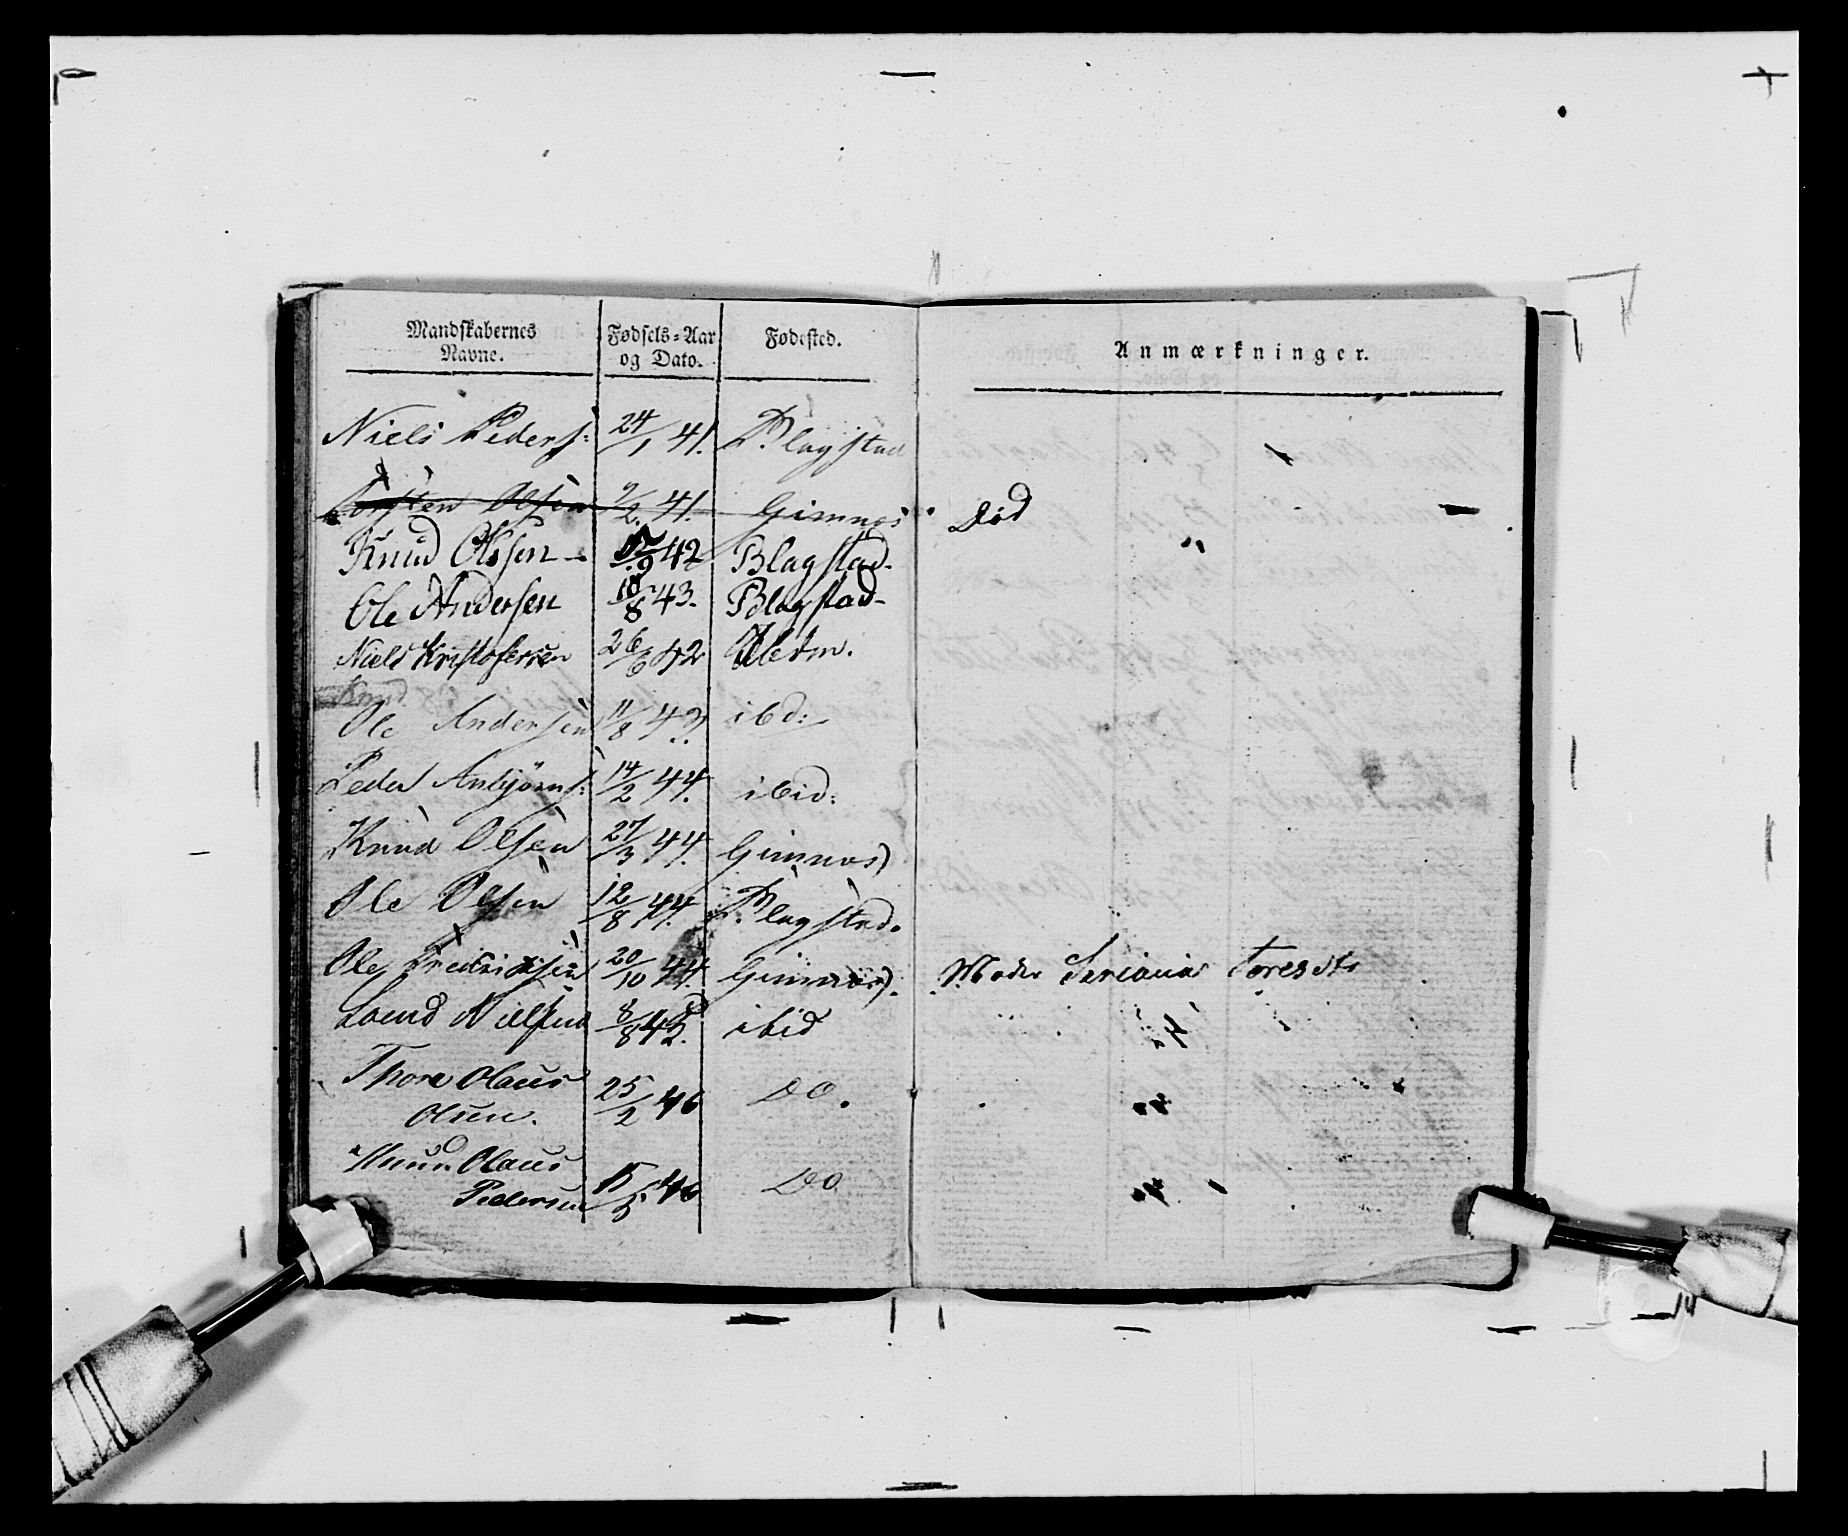 Mandskabernes Navne. Fødsels-Aar og Dato. Fødested. Anmærkninger.
Niels Peders: 24/1 41. Blagstad
Torsten Olsen 9/2. 41. Gimnæs Død
Knud Olssen - 9 42 Blagstad.
Ole Andersen 18/8 43. Blagstad-
Niels Kristofersen 26/6 42
Knud
Ole Andersen 11/8 43. ibd:
Peder Anbjörns: 14/2 44. ibid:
Knud Olsen 27/3 44. Gimnæs)
Ole Olsen 12/8 44. Blagstad.
Ole Fredriksen 20/10 44. Gimnæs). Moder Toresdtr
Lornd Nielsen 8/8 42. ibid
Thore Olaus 25/2 46 DO.
Olsen.
Knud Olaus
Pedersen 15/5 46 DO